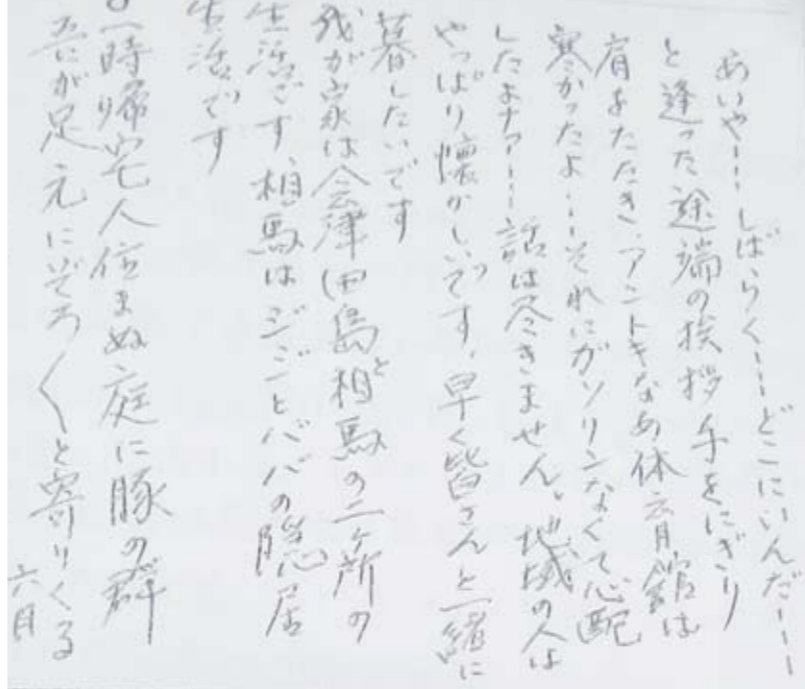 あいやーーしばらくーーどこにいんだーーー
と逢った途端の挨拶手をにぎり
肩をたたき、アントキなあ体育館は
寒かったよ…それにガソリンなくて心配
したよナァーー話は尽きません。地域の人は
やっぱり懐かしいです、早く皆さんと一緒に
暮したいです
我が家は会津田島と相馬の二ヶ所の
生活です、相馬はジジとババの隠居
生活です
〇一時帰宅人住まぬ庭に豚の群
吾が足元にぞろ〱と寄りくる
六月